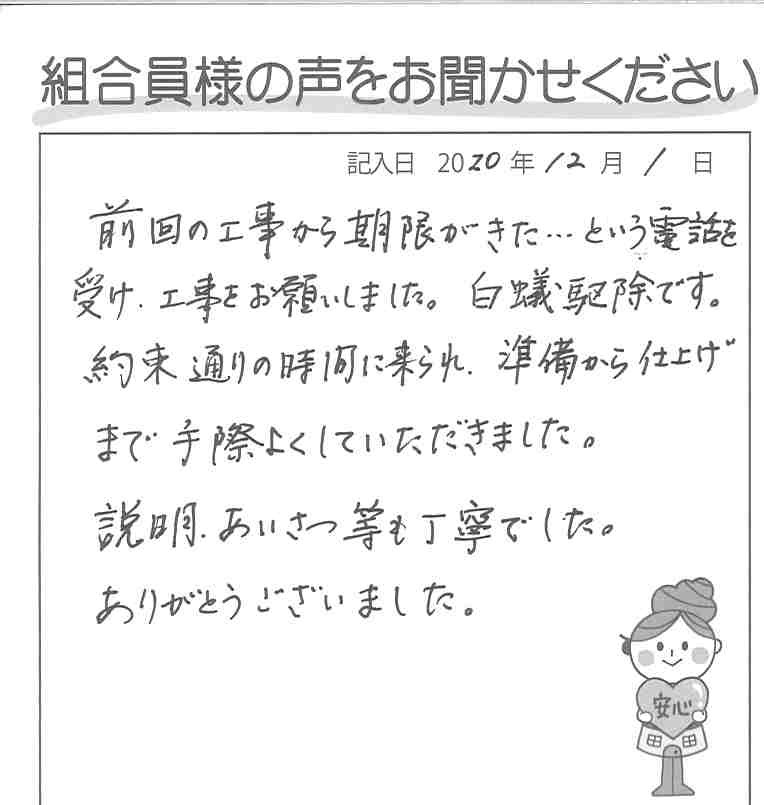 組合員様の声をお聞かせください
記入日 2020年12月1日
前回の工事から期限がきた…という電話を
受け、工事をお願いしました。白蟻駆除です。
約束通りの時間に来られ、準備から仕上げ
まで手際よくしていただきました。
説明、あいさつ等も丁寧でした。
ありがとうございました。
安心